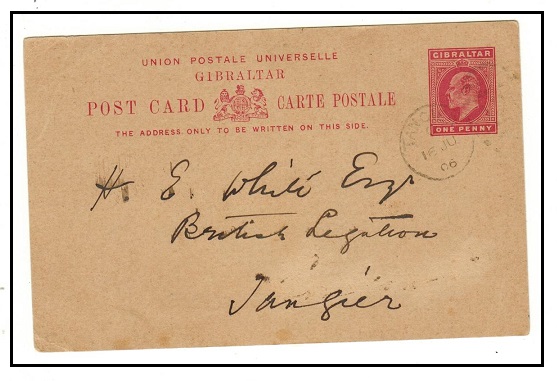 UNION POSTALE UNIVERSELLE
GIBRALTAR
POST CARD CARTE POSTALE
THE ADDRESS ONLY TO BE WRITTEN ON THIS SIDE.
GIBRALTAR
ONE PENNY
JU
06
H E White Esqr
British Legation
Tangier